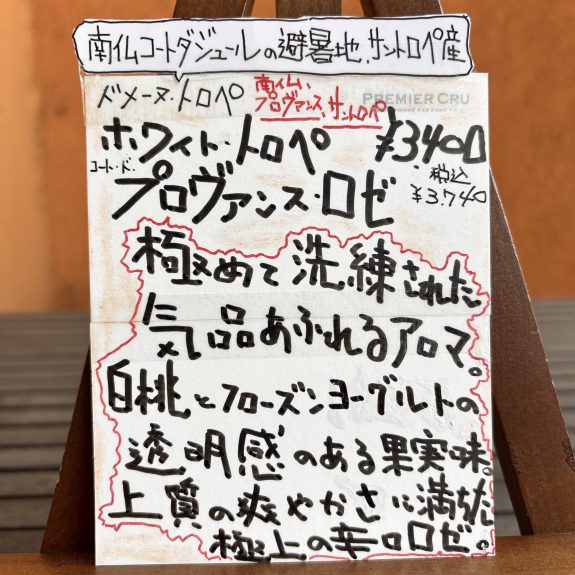 南仏コートダジュールの避暑地、サントロペ産
ドメーヌ・トロペ
南仏、
プロヴァンス、サントロペ
PREMIER CRU
ホワイト・トロペ
¥3400
コート・ド・
税込
¥3.740
プロヴァンス・ロゼ
極めて洗練された
気品あふれるアロマ。
白桃とフローズンヨーグルトの
透明感のある果実味。
上質の爽やかさに満ちた
極上の辛口ロゼ。